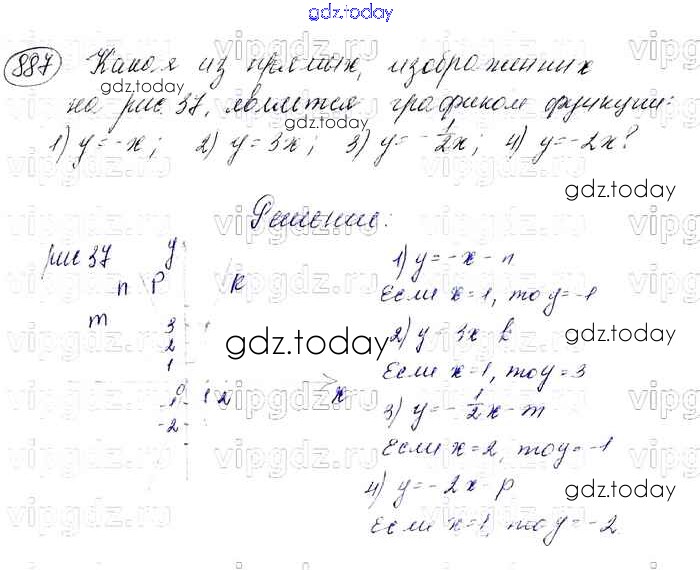 gdz.today
gdz.today
887 Какая из прямых, изображенных
на рис. 37, является графиком функции:
gdz.today
1) y = -x; 2) y = 3x; 3) y = -1/2x; 4) y = -2x?
gdz.today
Решение:
рис 37 y
n p k
m
3
2
1
0 1 2 x
-1
-2
gdz.today
1) y = -x - n
Если x = 1, то y = -1
2) y = 3x - k
gdz.today
Если x = 1, то y = 3
3) y = -1/2x - m
Если x = 2, то y = -1
4) y = -2x - p
gdz.today
Если x = 1, то y = -2
vipgdz.ru